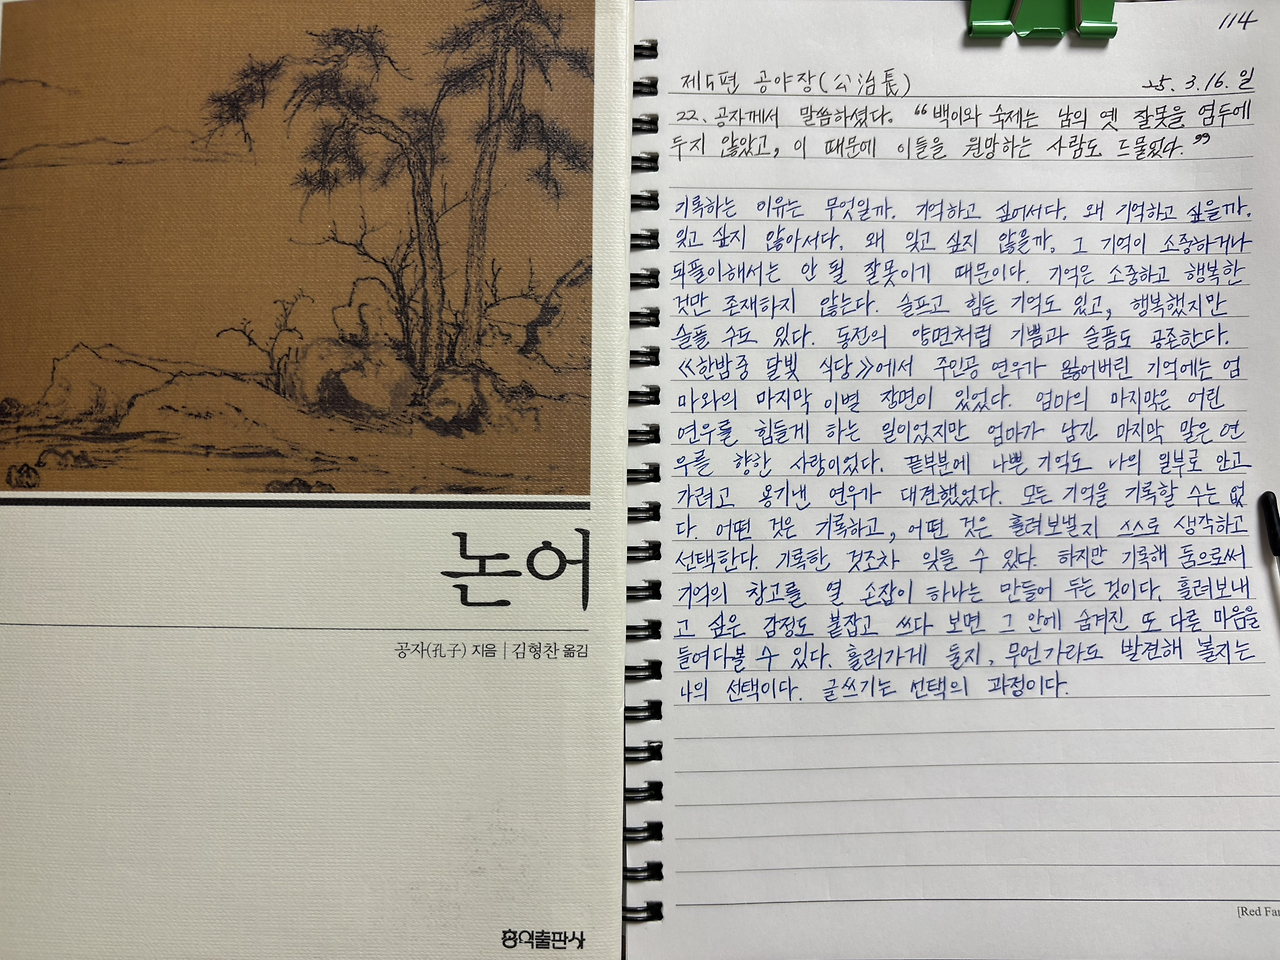 논어
공자(孔子) 지음 | 김형찬 옮김
홍익출판사
114
제5편 공야장(公治長) 25. 3. 16. 일
22. 공자께서 말씀하셨다. "백이와 숙제는 남의 옛 잘못을 염두에
두지 않았고, 이 때문에 이들을 원망하는 사람도 드물었다."
기록하는 이유는 무엇일까. 기억하고 싶어서다. 왜 기억하고 싶을까.
잊고 싶지 않아서다. 왜 잊고 싶지 않을까. 그 기억이 소중하거나
되풀이해서는 안 될 잘못이기 때문이다. 기억은 소중하고 행복한
것만 존재하지 않는다. 슬프고 힘든 기억도 있고, 행복했지만
슬플 수도 있다. 동전의 양면처럼 기쁨과 슬픔도 공존한다.
《한밤중 달빛 식당》에서 주인공 연우가 잃어버린 기억에는 엄
마와의 마지막 이별 장면이 있었다. 엄마의 마지막은 어린
연우를 힘들게 하는 일이었지만 엄마가 남긴 마지막 말은 연
우를 향한 사랑이었다. 끝부분에 나쁜 기억도 나의 일부로 안고
가려고 용기낸 연우가 대견했었다. 모든 기억을 기록할 수는 없
다. 어떤 것은 기록하고, 어떤 것은 흘려보낼지 스스로 생각하고
선택한다. 기록한 것조차 잊을 수 있다. 하지만 기록해 둠으로써
기억의 창고를 열 손잡이 하나는 만들어 두는 것이다. 흘려보내
고 싶은 감정도 붙잡고 쓰다 보면 그 안에 숨겨진 또 다른 마음을
들여다볼 수 있다. 흘러가게 둘지, 무언가라도 발견해 볼지는
나의 선택이다. 글쓰기는 선택의 과정이다.
[Red Fa